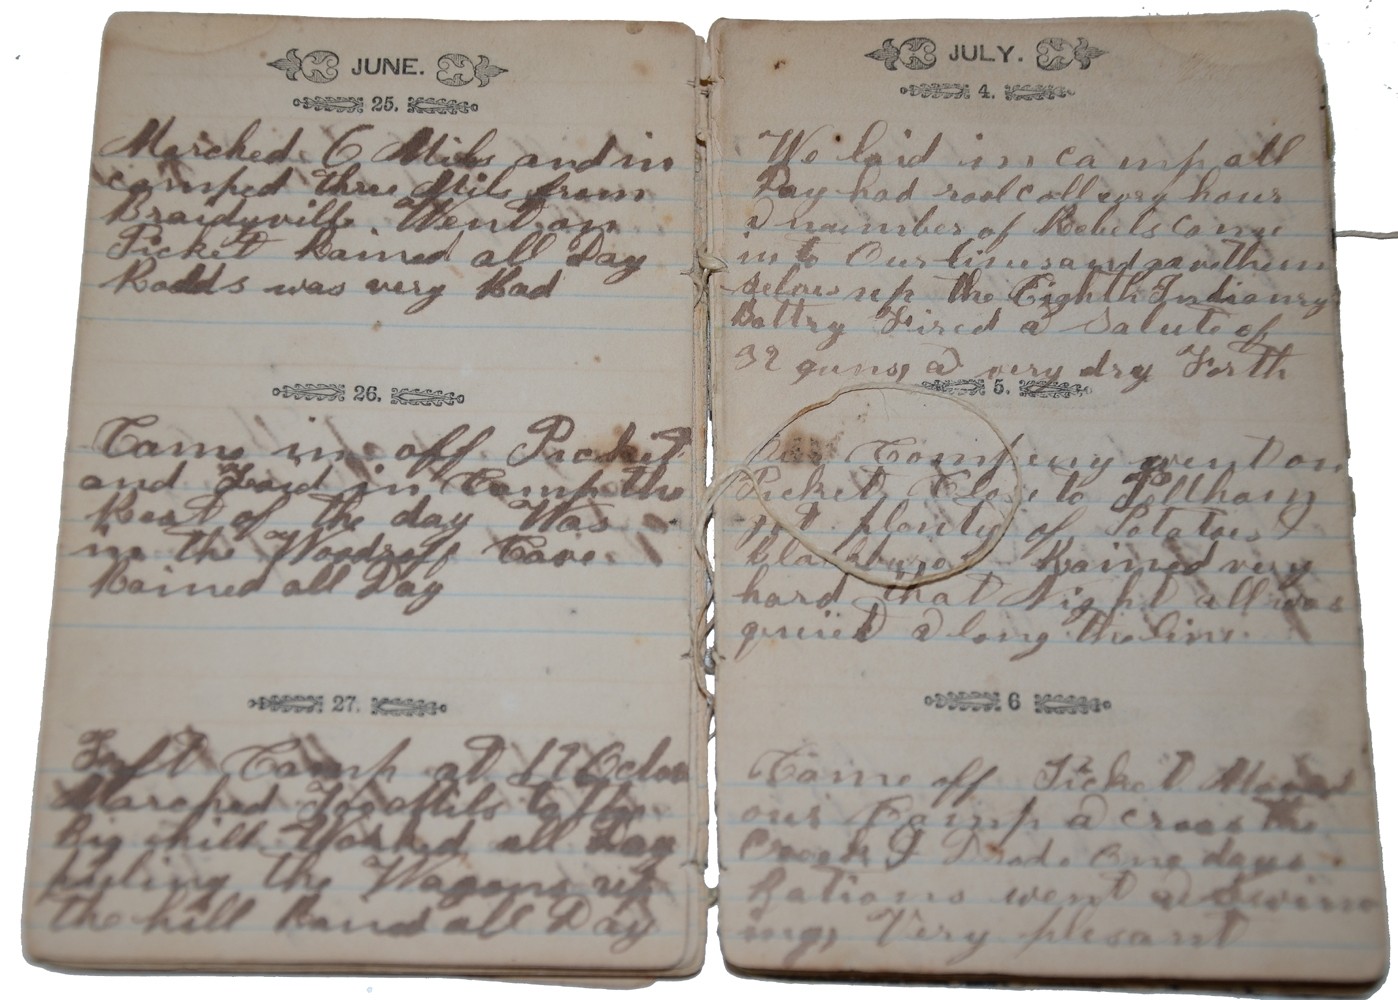 JUNE.
25.
Marched 6 Mils and in
camped three Mils from
Braidyville Went on
Picket Rained all Day
Rodds was very Bad
26.
Came in off Picket
and Laid in Camp the
Rest of the day Was
in the Woodroff Cave.
Rained all Day
27.
Left Camp at 12 Oclock
Marched Two Mils to the
Big hill Worked all Day
huling the Wagons up
the hill Raind all Day
JULY.
4.
We laid in camp all
Day had roolcall evry hour
a number of Rebels Come
in to Our lines and gave them
selves up the Eighth Indianry
Battry Fired a Salute of
32 guns, a very dry Forth
5.
Our Company went on
Picket Close to Pellham
got plenty of Potatoes &
Rained very
hard that Night all was
qeuiet a long the line.
6
Came off Picket Moved
our Camp a cross the
Creek I Drad. One days
Rations went a Swim
ing, Very plesant